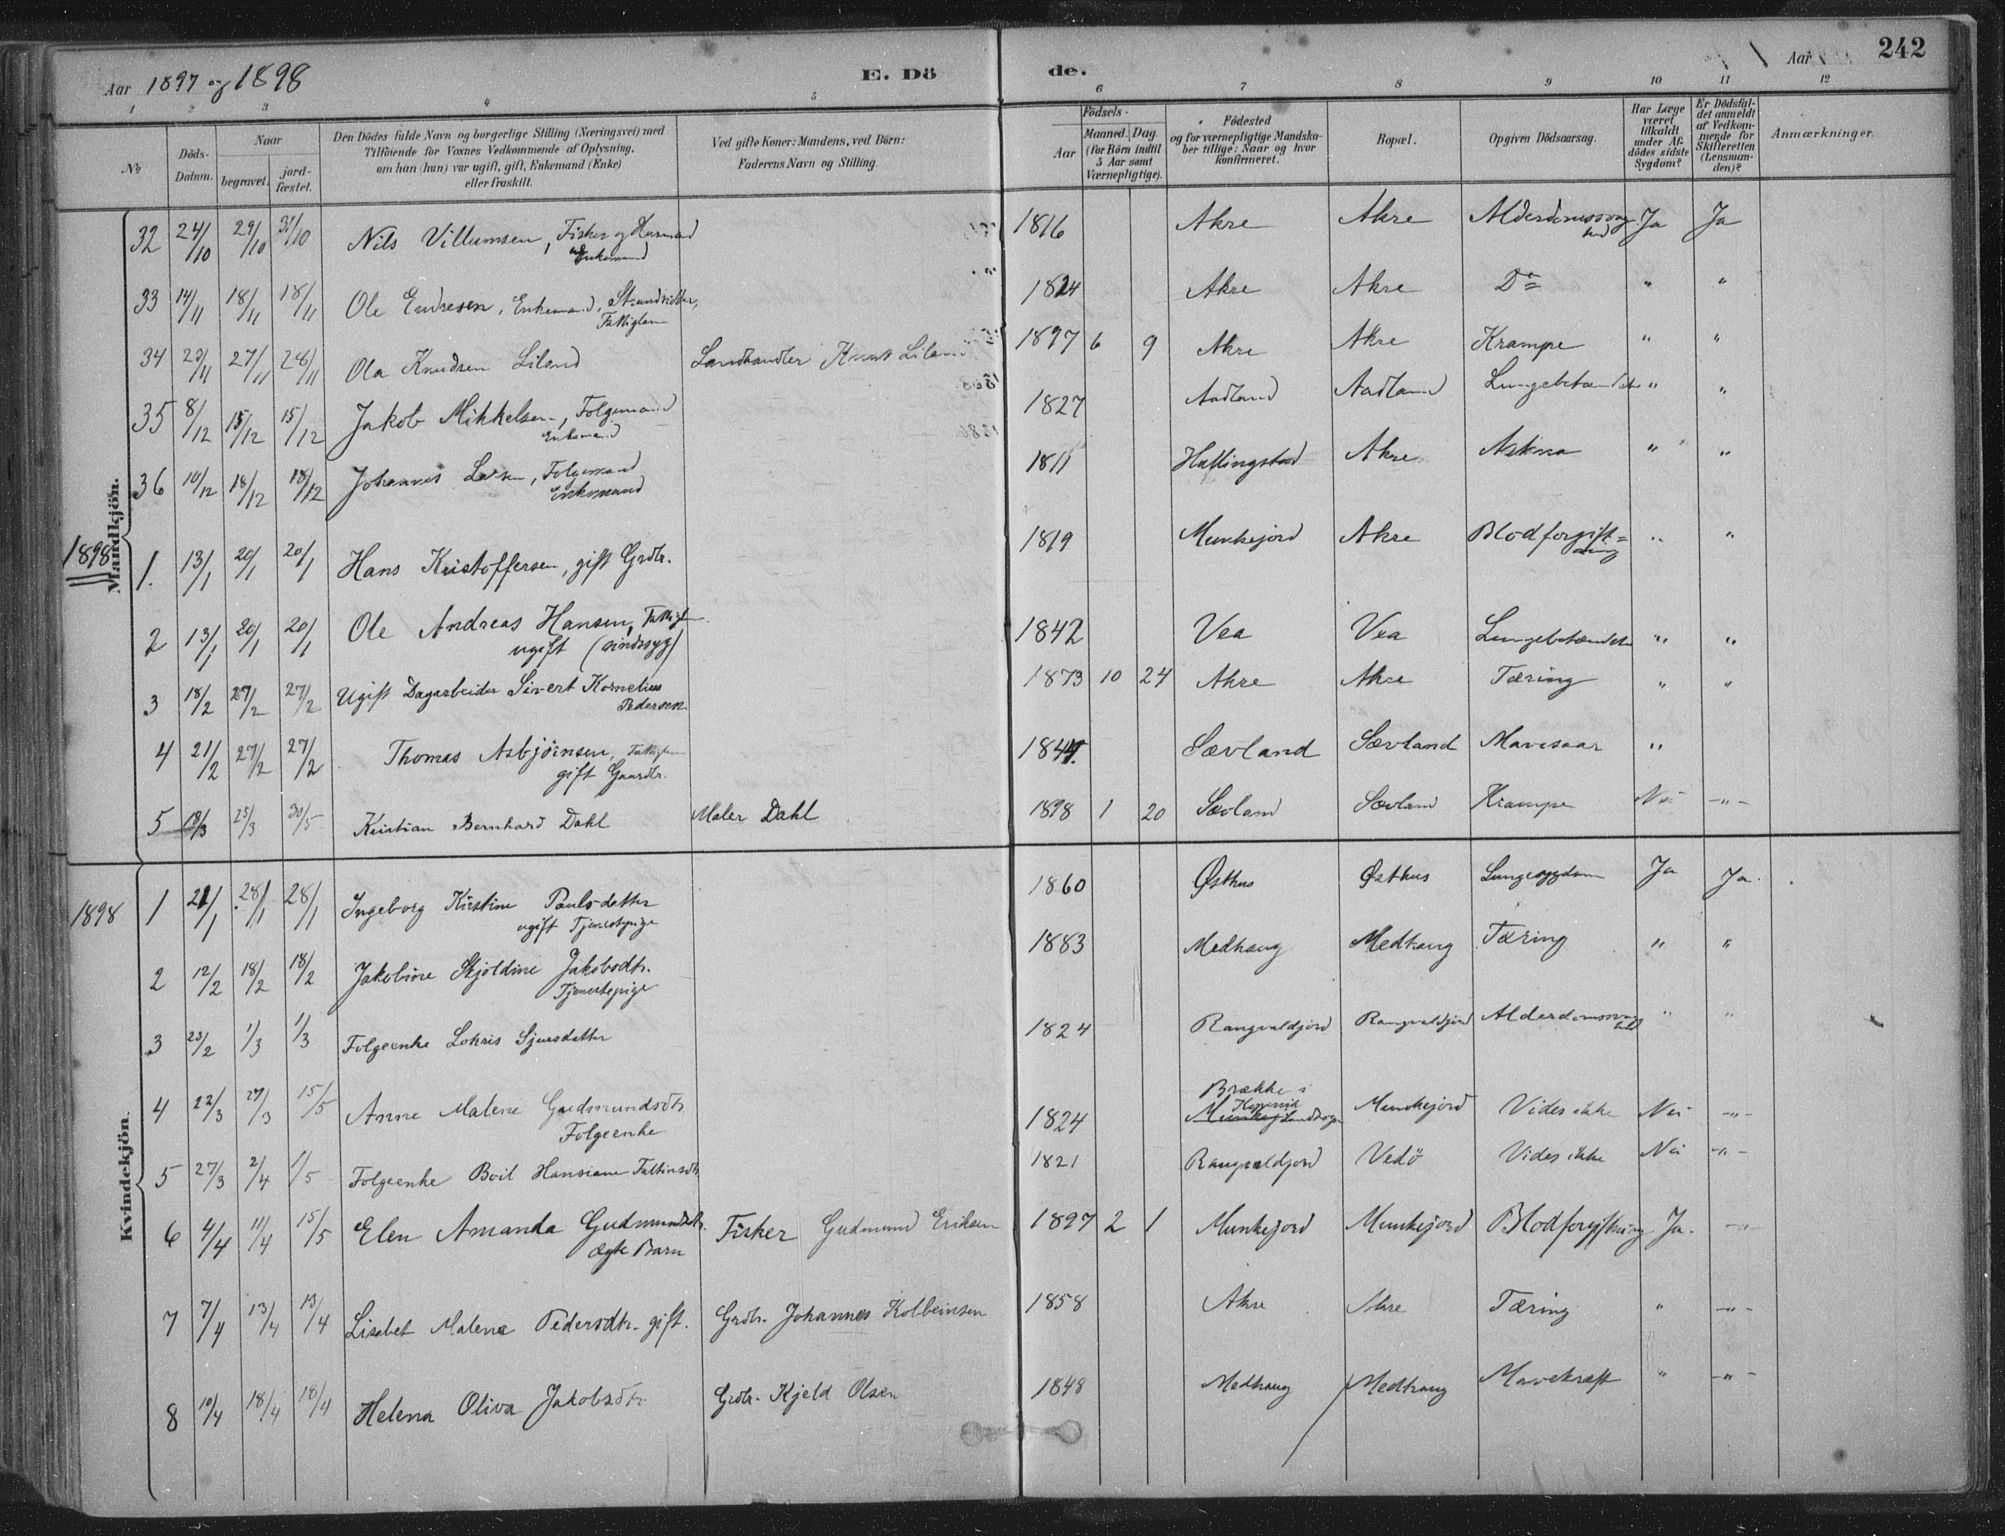 Aar 1897 og 1898 E. Dö de. Aar 242
1 2 3 4 5 6 7 8 9 10 11 12
No Döds-Datum. Naar begravet. jord-fæstet. Den Dödes fulde Navn og borgerlige Stilling (Næringsvei) med Tilföiende for Voxnes Vedkommende af Oplysning, om han (hun) var ugift, gift, Enkemand (Enke) eller fraskilt. Ved gifte Koner: Mandens, ved Börn: Faderens Navn og Stilling. Födsels- Aar Maaned. Dag. (for Börn indtil 5 Aar samt Værnepligtige). Födested og for værnepligtige Mandskaber tillige: Naar og hvor konfirmeret. Bopæl. Opgiven Dödsaarsag. Har Læge været tilkaldt under Afdödes sidste Sygdom? Er Dödsfaldet anmeldt af Vedkommende for Skifteretten (Lensmanden)? Anmærkninger.
Mandkjön.
32 24/10 29/10 31/10 Nils Villumsen, Fisker og Husmand Enkemand 1816 Akre Akre Alderdomssvaghed Ja Ja
33 14/11 18/11 18/11 Ole Endresen, Enkemand, Strandsidder, Fattiglem 1824 Akre Akre Do " "
34 23/11 27/11 28/11 Ola Knudsen Liland Landhandler Knut Liland 1897 6 9 Akre Akre Krampe " "
35 8/12 15/12 15/12 Jakob Mikkelsen, Folgemand Enkemand 1827 Aadland Aadland Lungebetændelse " "
36 10/12 18/12 18/12 Johannes Larsen, Folgemand Enkemand 1811 Hallingstad Akre Astma " "
1898
1. 13/1 20/1 20/1 Hans Kristoffersen, gift Grdbr. 1819 Munkejord Akre Blodforgift=ning " "
2 13/1 20/1 20/1 Ole Andreas Hansen, Fattigl. ugift (sindssyg) 1842 Vea Vea Lungebetændelse " "
3 18/2 27/2 27/2 Ugift Dagarbeider Sivert Kornelius Pedersen 1873 10 24 Akre Akre Tæring " "
4 21/2 27/2 27/2 Thomas Asbjörnsen, Fattiglem gift Gaardbr. 1844. Sævland Sævland Mavesaar "
5 18/3 25/3 30/5 Kristian Bernhard Dahl Maler Dahl 1898 1 20 Sævland Sævland Krampe Nei -"-
Kvindekjön.
1898
1 21/1 28/1 28/1 Ingeborg Kirstine Paulsdatter ugift Tjenestepige 1860 Østhus Østhus Lungesygdom Ja Ja.
2 12/2 18/2 18/2 Jakobine Skjoldine Jakobsdtr. Tjenestepige 1883 Medhaug Medhaug Tæring " "
3 23/2 1/3 1/3 Folgeenke Lokris Sjursdatter 1824 Rangvaldjord Rangvaldjord Alderdomssvaghed " "
4 22/3 27/3 15/5 Anne Malene Gudmundsdtr. Folgeenke 1824 Brække i Kopervik Landsogn Munkejord Vides ikke Nei -"-
5 27/3 2/4 1/5 Folgeenke Boil Hansiane Faltinsdtr 1821 Rangvaldjord Vedö Vides ikke Nei -"-
6 4/4 11/4 15/5 Elen Amanda Gudmundsdtr. ægte Barn Fisker Gudmund Eriksen 1897 2 1 Munkejord Munkejord Blodforgiftning Ja. -"-
7 7/4 13/4 13/4 Lisabet Malene Pedersdtr. gift. Grdbr. Johannes Kolbeinsen 1858 Akre Akre Tæring " -"-
8 10/4 18/4 18/4 Helena Oliva Jakobsdtr Grdbr. Kjeld Olsen 1848 Medhaug Medhaug Mavekræft " -"-